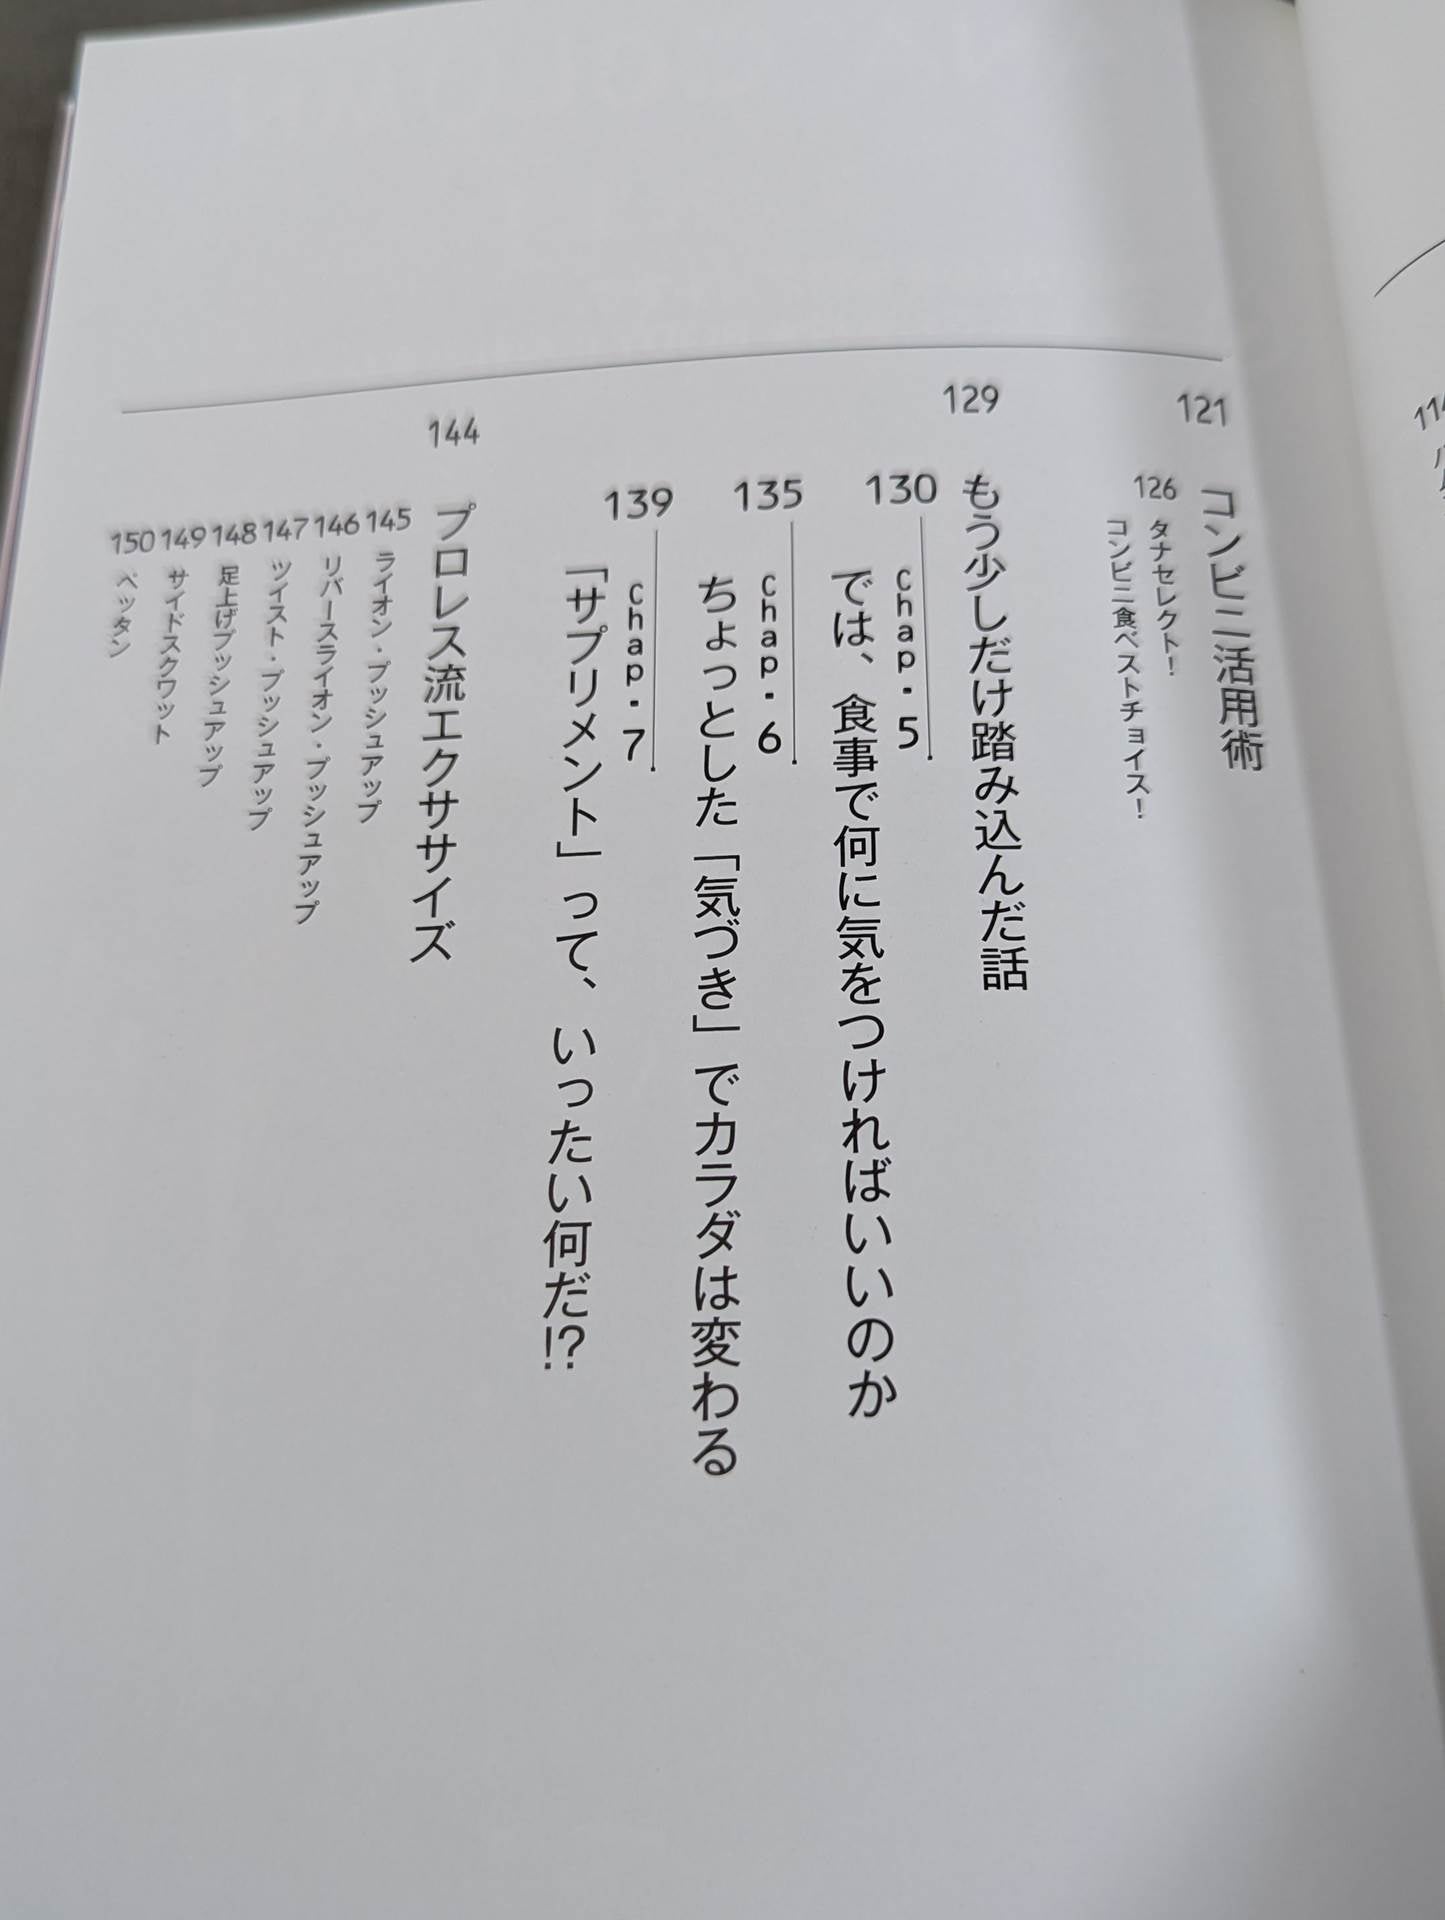 121 コンビニ活用術
126 タナセレクト！
コンビニ食べストチョイス！
129 もう少しだけ踏み込んだ話
130 chap.5
では、食事で何に気をつければいいのか
135 chap.6
ちょっとした「気づき」でカラダは変わる
139 chap.7
「サプリメント」って、いったい何だ!?
144 プロレス流エクササイズ
145 ライオン・プッシュアップ
146 リバースライオン・プッシュアップ
147 ツイスト・プッシュアップ
148 足上げプッシュアップ
149 サイドスクワット
150 ペッタン